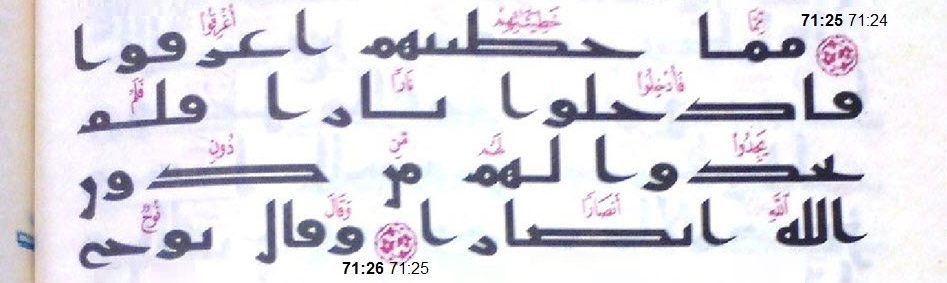 71:25 71:24
مِمَّا خَطِيئَاتِهِمْ أُغْرِقُوا
مما خطيئتهم اغرقوا
فَأُدْخِلُوا نَارًا فَلَمْ
فادخلوا نارا فلم
يَجِدُوا لَهُمْ مِنْ دُونِ
يجدوا لهم من دون
اللَّهِ أَنْصَارًا وَقَالَ نُوحٌ
الله انصارا وقال نوح
71:26 71:25